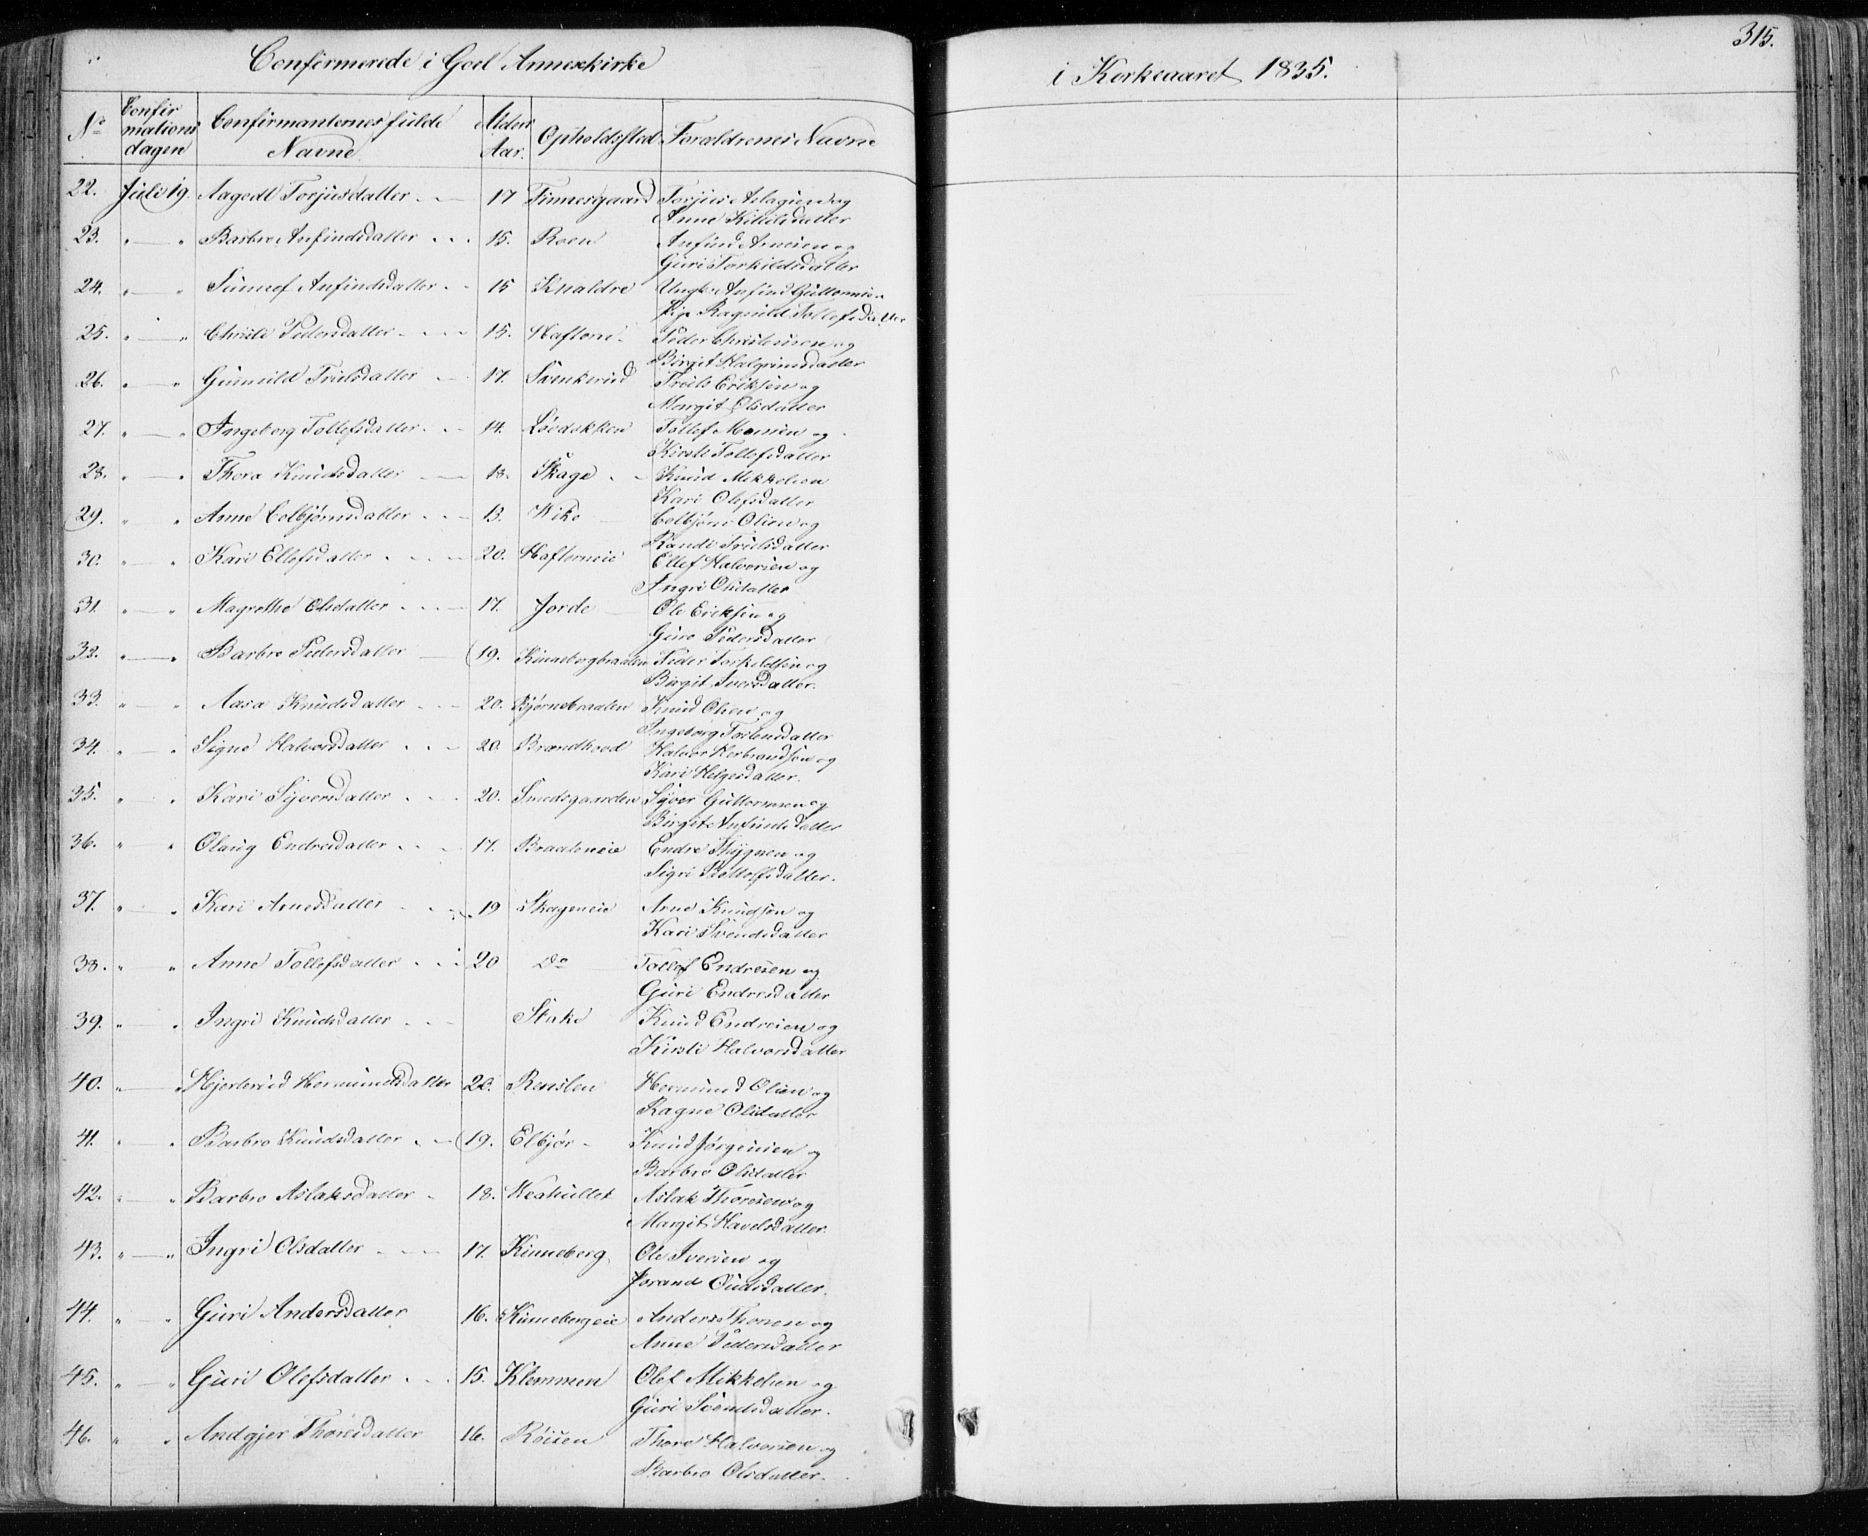 Confirmerede i Goel Annexkirke
i Kirkeaaret 1835.
315.
No Confirmations dagen Confirmanternes fulde Navne Alder Aar. Opholdssted Forældrenes Navne
22. Juli 19. Aagodt Torjusdatter 17 Finnesgaard Torjus Aslagsen og
Anne Kittilsdatter
23. " — " Barbro Anfindsdatter 15. Roen Anfind Arnesen og
Guri Torkildsdatter
24. " — " Sünnof Anfindsdatter 15 Knaldre Ungk: Anfind Guttormsen
Pige Ragnild Tollefsdatter
25. " — " Christi Pedersdatter 15. Haftorn Peder Christensen og
Birgit Halgrimsdatter
26. " — " Günnild Truelsdatter 17. Svenkerud Truls Eriksen og
Margit Olsdatter
27. " — " Ingeborg Tollefsdatter 14. Løedokken Tollef Monsen og
Kirsti Tollefsdatter
28. " — " Thora Knudsdatter 18. Skaga Knud Mikkelsen
Kari Olefsdatter
29. " " Anne Colbjørnsdatter 13. Wiko Colbjørn Olsen og
Randi Truelsdatter
30. " — " Kari Ellefsdatter 20. Haftorneie Ellef Halvorsen og
Ingri Olsdatter
31. " — " Magrethe Olsdatter 17. Jorde Ole Eriksen og
Guro Pedersdatter
32. " — " Barbro Pedersdatter 19. Kinnebergbraaten Peder Torkildsen og
Birgit Iversdatter.
33. " — " Aasa Knudsdatter 20. Bjørnebraaten Knud Olsen og
Ingeborg Torstensdatter
34. " — " Signe Halvorsdatter 20. Brandhovd Halvor Herbrandsen og
Kari Helgesdatter.
35. " — " Kari Syversdatter 20. Smedsgaarden Syver Guttormsen og
Birgit Anfindsdatter
36. " " Olaug Endresdatter 17. Braateneie Endre Thygesen og
Sigri Bottolfsdatter.
37. " — " Kari Arnesdatter 19 Skageneie Arne Knudsen og
Kari Svendsdatter
38. " " Anne Tollefsdatter 20 Do Tollef Endresen og
Guri Endresdatter
39. " " Ingri Knudsdatter Stake Knud Endresen og
Kirsti Halvorsdatter
40. " — " Hjerterud Hermundsdatter 20. Renslen Hermund Olsen og
Ragne Olsdatter
41. " " Barbro Knudsdatter 19. Elbjør Knud Jørgensen og
Barbro Olsdatter
42. " — " Barbro Aslaksdatter 18. Neshullet Aslak Thoresen og
Margit Havelsdatter
43. " — " Ingri Olsdatter 17. Kinneberg Ole Iversen og
Jorand Oudsdatter.
44. " " Guri Andersdatter 16. Kinnebergeie Anders Thoresen og
Anne Pedersdatter
45. " — " Guri Olefsdatter 15. Klemmen Olef Mikkelsen og
Guri Svendsdatter.
46. " " Andgjer Thoresdatter 16. Røisen Thore Halvorsen og
Barbro Olsdatter.